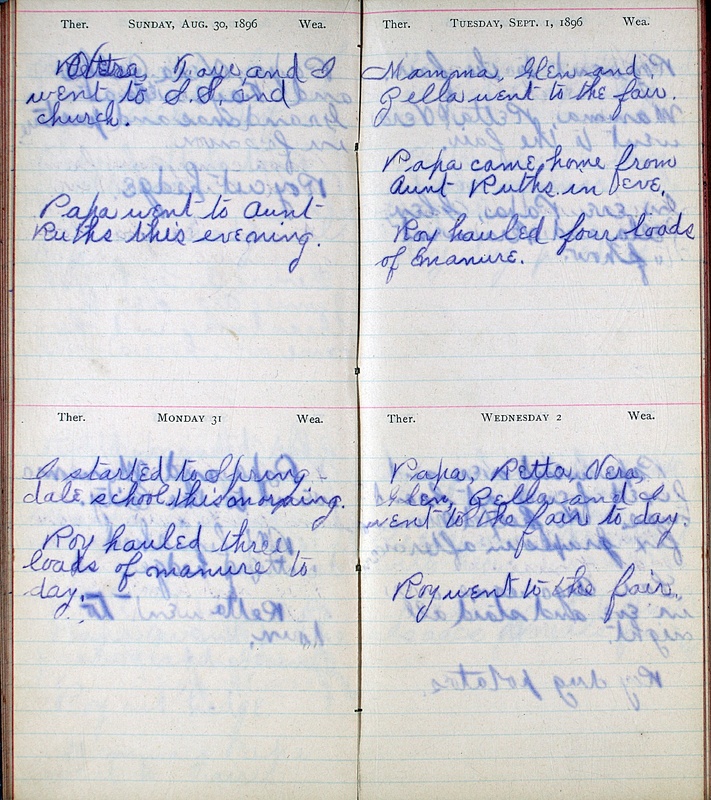 Ther. Sunday, Aug. 30, 1896 Wea.
Vera, Faye and I
went to S.S. and
church.
Papa went to Aunt
Ruths this evening.
Ther. Monday 31 Wea.
I started to Spring-
dale school this morning.
Roy hauled three
loads of manure to
day.
Ther. Tuesday, Sept. 1, 1896 Wea.
Mamma, Glen and
Zella went to the fair.
Papa came home from
Aunt Ruths in eve,
Roy hauled four loads
of manure.
Ther. Wednesday 2 Wea.
Papa, Retta, Vera,
Glen, Zella and I
went to the fair to day.
Roy went to the fair.